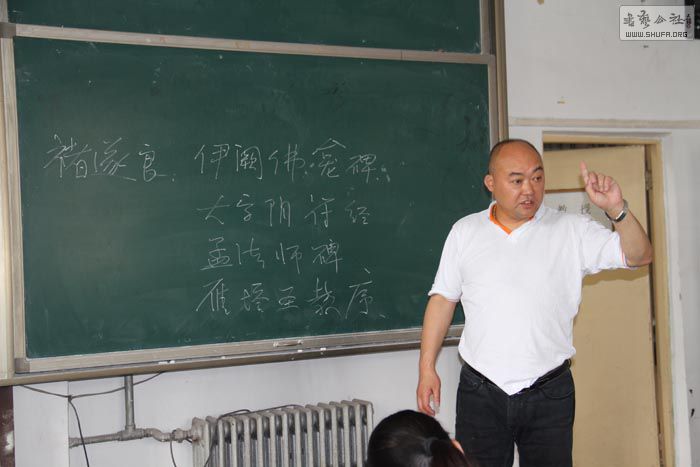 書藝公社
WWW.SHUFA.ORG
褚遂良. 伊阙佛龛碑.
大字阴符经
孟法师碑
雁塔圣教序.